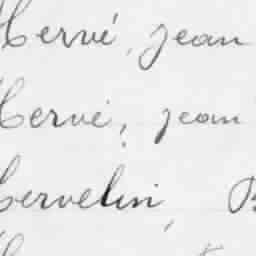 Hervé, Jean
Hervé, Jean
Hervelin, B